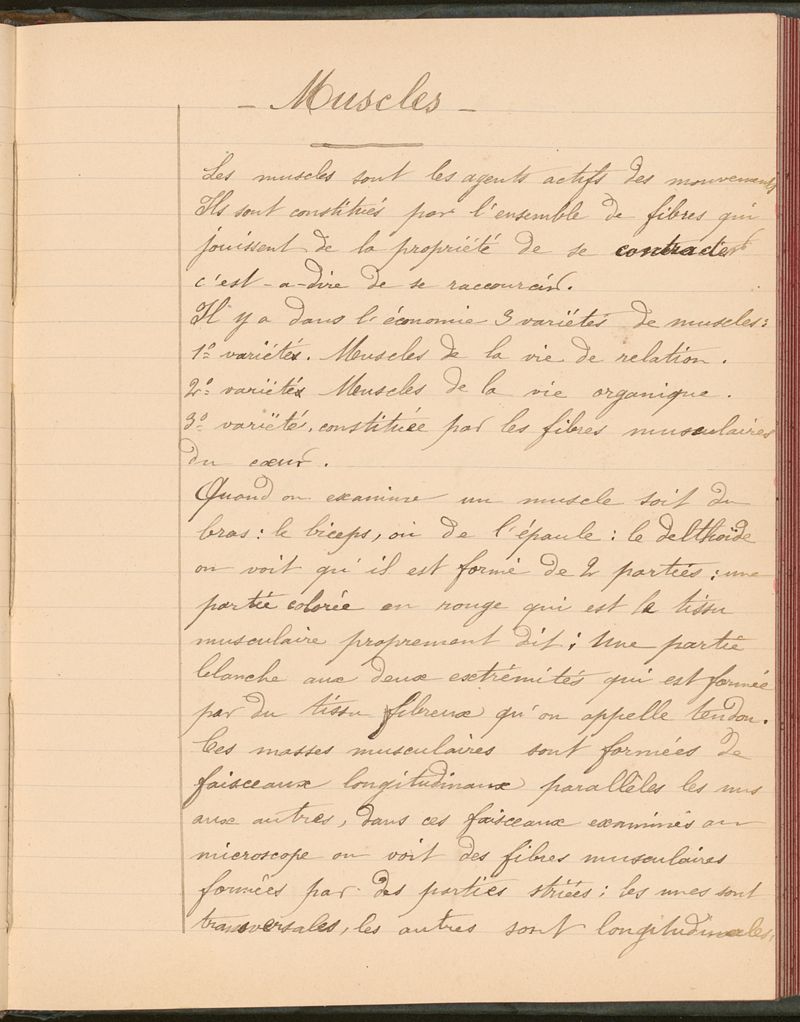 - Muscles -
Les muscles sont les agents actifs des mouvements
Ils sont constitués par l'ensemble de fibres qui
jouissent de la propriété de se contracter
c'est-a-dire de se raccourcir.
Il y a dans l'économie 3 variétés de muscles:
1º variétés. Muscles de la vie de relation.
2º variétés Muscles de la vie organique.
3º variétés, constituée par les fibres musculaires
du cœur.
Quand on examine un muscle soit du
bras: le biceps, ou de l'épaule: le delthoïde
on voit qu'il est formé de 2 parties: une
partie colorée en rouge qui est le tissu
musculaire proprement dit; Une partie
blanche aux deux extrémités qui est formée
par du tissu fibreux qu'on appelle tendon.
Ces masses musculaires sont formées de
faisceaux longitudinaux parallèles les uns
aux autres, dans ces faisceaux examinés au
microscope on voit des fibres musculaires
formées par des parties striées: les unes sont
transversales, les autres sont longitudinales,